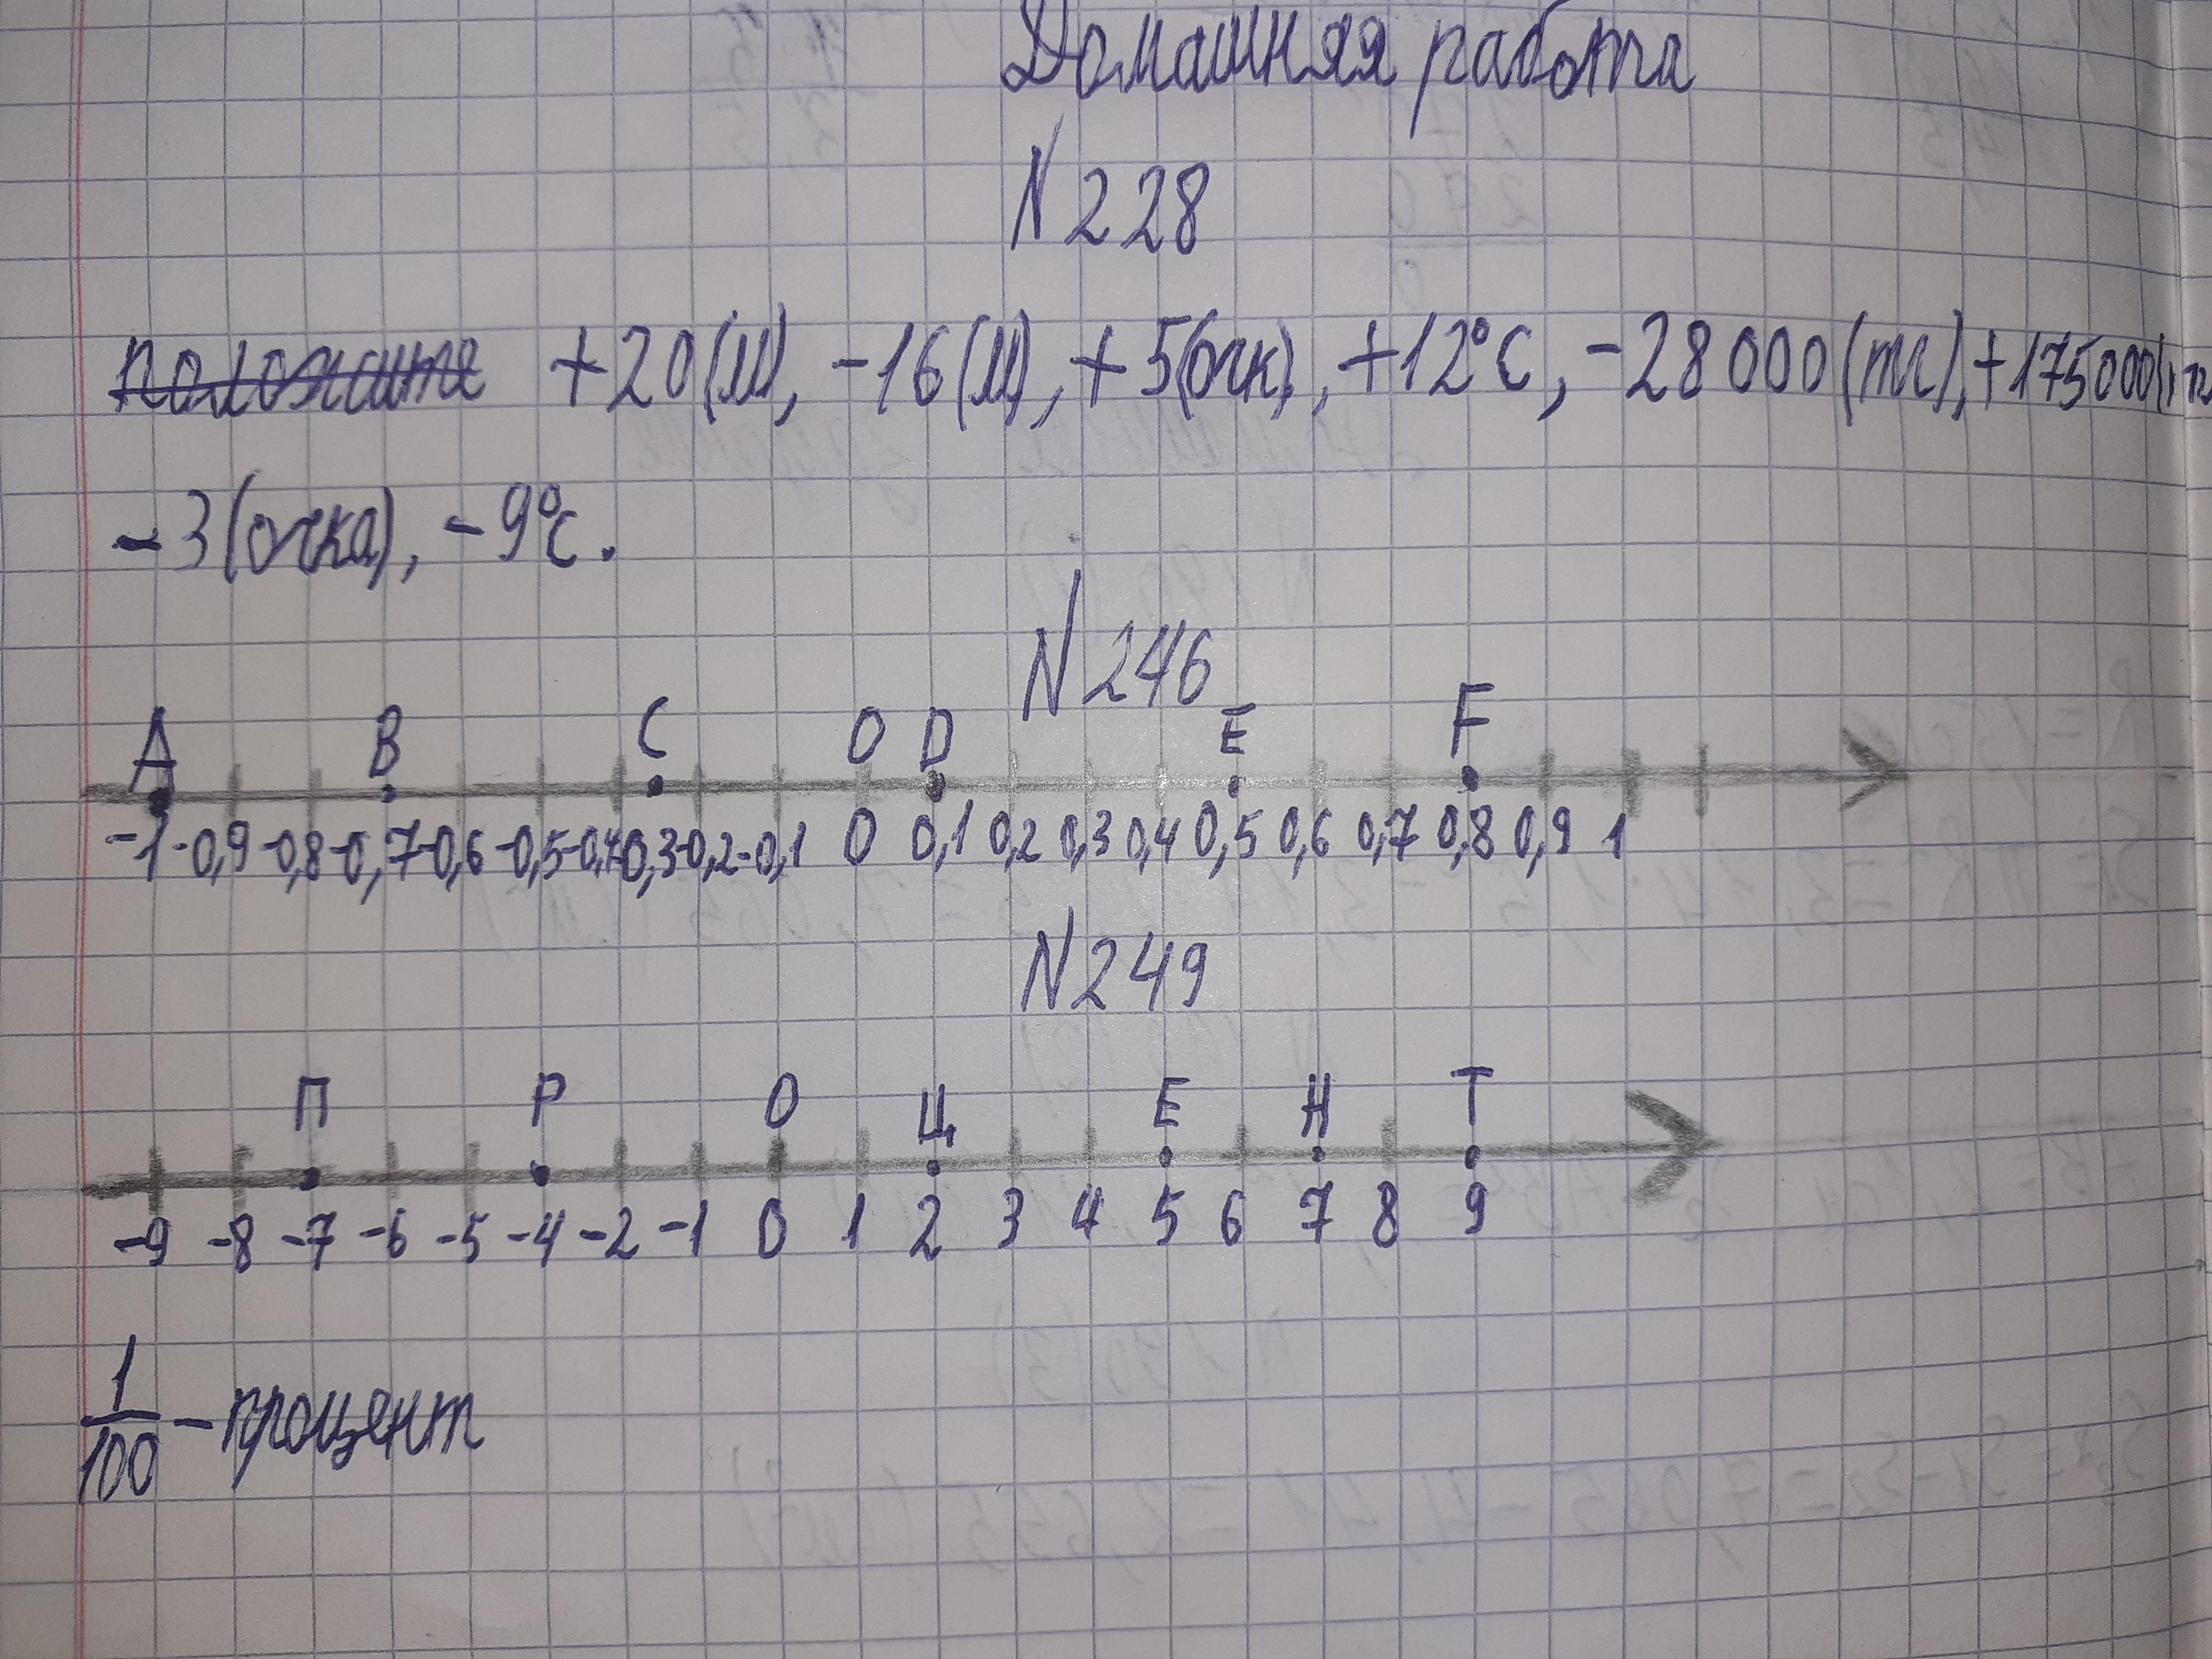 Домашняя работа
N 228
положите +20(м), -16(м), +5(очк), +12°С, -28 000(тг), +175000(тг
-3(очка), -9°С.
N 246
A B C O D E F
-1 -0,9 -0,8 -0,7 -0,6 -0,5 -0,4 -0,3 -0,2 -0,1 0 0,1 0,2 0,3 0,4 0,5 0,6 0,7 0,8 0,9 1
N 249
П Р О Ц Е Н Т
-9 -8 -7 -6 -5 -4 -2 -1 0 1 2 3 4 5 6 7 8 9
1/100 – процент